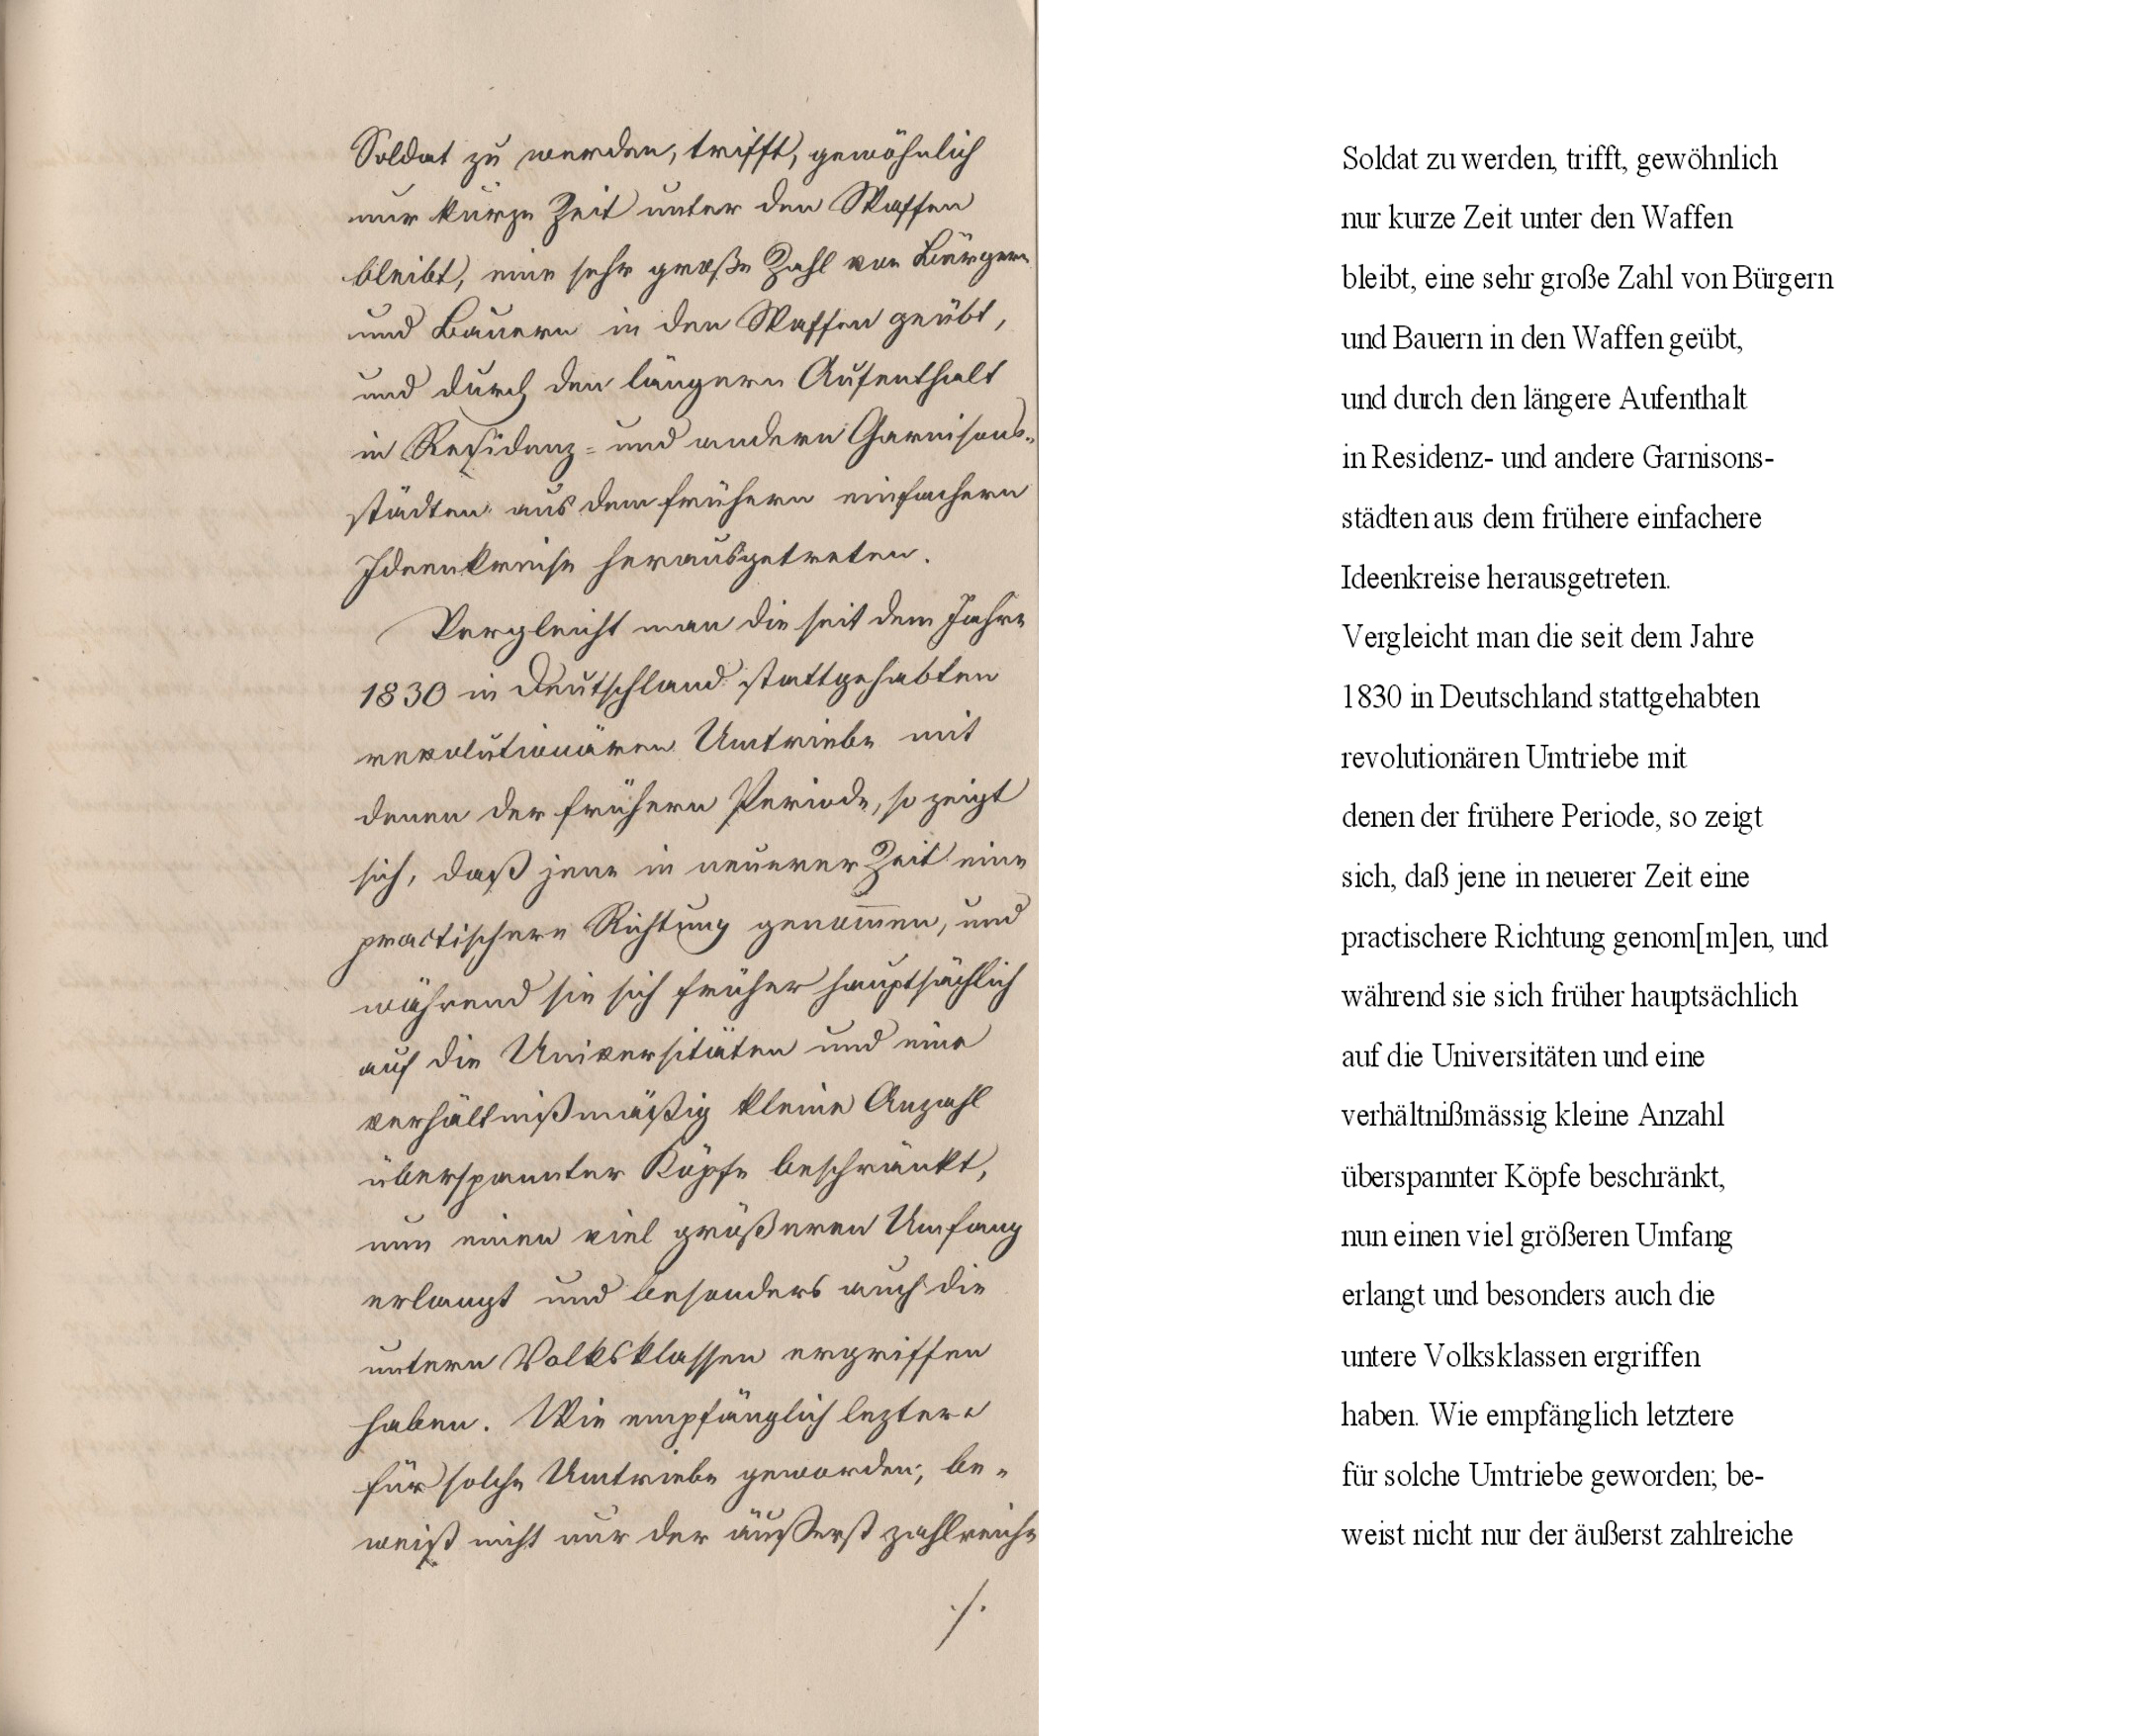 Soldat zu werden, trifft, gewöhnlich
nur kurze Zeit unter den Waffen
bleibt, eine sehr große Zahl von Bürgern
und Bauern in den Waffen geübt,
und durch den längern Aufenthalt
in Residenz- und andern Garnisons-
städten aus dem frühern einfachern
Ideenkreise herausgetreten.
Vergleicht man die seit dem Jahre
1830 in Deutschland stattgehabten
revolutionären Umtriebe mit
denen der frühern Periode, so zeigt
sich, daß jene in neuerer Zeit eine
practischere Richtung genom̅en, und
während sie sich früher hauptsächlich
auf die Universitäten und eine
verhältnißmäßig kleine Anzahl
überspannter Köpfe beschränkt,
nun einen viel größeren Umfang
erlangt und besonders auch die
untern Volksklassen ergriffen
haben. Wie empfänglich leztere
für solche Umtriebe geworden, be-
weist nicht nur der äußerst zahlreiche
./.
Soldat zu werden, trifft, gewöhnlich
nur kurze Zeit unter den Waffen
bleibt, eine sehr große Zahl von Bürgern
und Bauern in den Waffen geübt,
und durch den längere Aufenthalt
in Residenz- und andere Garnisons-
städten aus dem frühere einfachere
Ideenkreise herausgetreten.
Vergleicht man die seit dem Jahre
1830 in Deutschland stattgehabten
revolutionären Umtriebe mit
denen der frühere Periode, so zeigt
sich, daß jene in neuerer Zeit eine
practischere Richtung genom[m]en, und
während sie sich früher hauptsächlich
auf die Universitäten und eine
verhältnißmässig kleine Anzahl
überspannter Köpfe beschränkt,
nun einen viel größeren Umfang
erlangt und besonders auch die
untere Volksklassen ergriffen
haben. Wie empfänglich letztere
für solche Umtriebe geworden; be-
weist nicht nur der äußerst zahlreiche